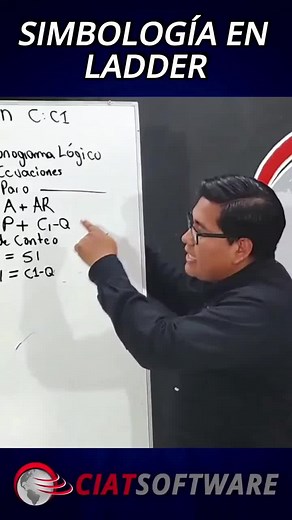 SIMBOLOGÍA EN
LADDER
n C:C1
onograma Lógico
Ecuaciones
Paro
A + AR
P + C1-Q
de Conteo
= S1
= C1-Q
CIATSOFTWARE